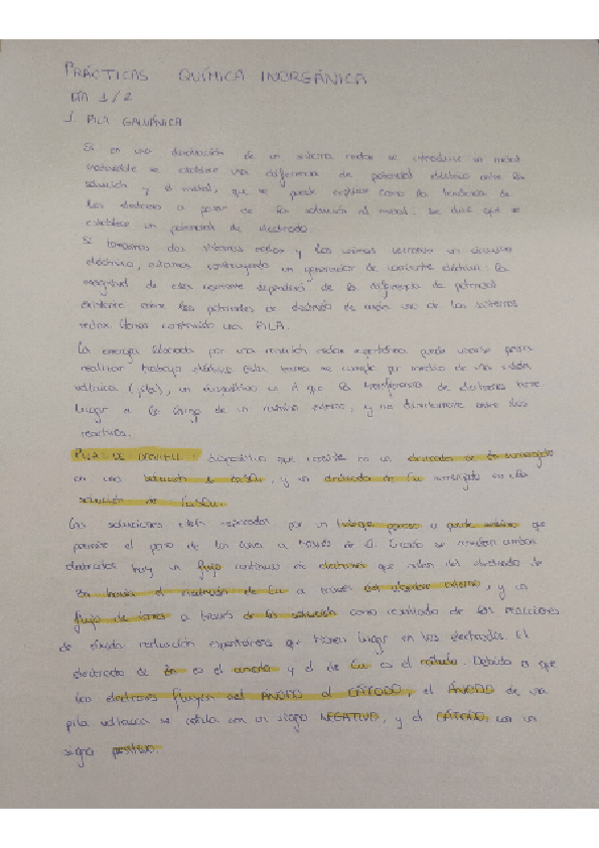 PRÁCTICAS QUÍMICA INORGÁNICA
DÍA 1/2
1. PILA GALVÁNICA
Si en una disolución de un sistema redox se introduce un metal
inatacable se establece una diferencia de potencial eléctrico entre la
solución y el metal, que se puede explicar como la tendencia de
los electrones a pasar de la solución al metal. Se dice que se
establece un potencial de electrodo.
Si tomamos dos sistemas redox y los unimos mediante un circuito
eléctrico, estamos construyendo un generador de corriente eléctrica. La
magnitud de esta corriente dependerá de la diferencia de potencial
existente entre los potenciales de electrodo de cada uno de los sistemas
redox. Hemos construido una PILA.
La energía liberada por una reacción redox espontánea puede usarse para
realizar trabajo eléctrico. Esta tarea se cumple por medio de una celda
voltaica (pila), un dispositivo en el que la transferencia de electrones tiene
lugar a lo largo de un camino externo, y no directamente entre los
reactivos.
PILA DE DANIELL: dispositivo que consiste en un electrodo de Zn sumergido
en una solución de, y un electrodo de Cu sumergido en una
solución de CuSO₄.
Las soluciones están separadas por un tabique poroso o puente salino que
permite el paso de los iones a través de él. Cuando se conectan ambos
electrodos hay un flujo continuo de electrones que salen del electrodo de
Zn hacia el electrodo de Cu a través del alambre externo, y un
flujo de iones a través de la solución como resultado de las reacciones
de óxido reducción espontáneas que tienen lugar en los electrodos. El
electrodo de Zn es el ánodo y el de Cu es el cátodo. Debido a que
los electrones fluyen del ÁNODO al CÁTODO, el ÁNODO de una
pila voltaica se rotula con un signo NEGATIVO, y el CÁTODO con un
signo positivo.